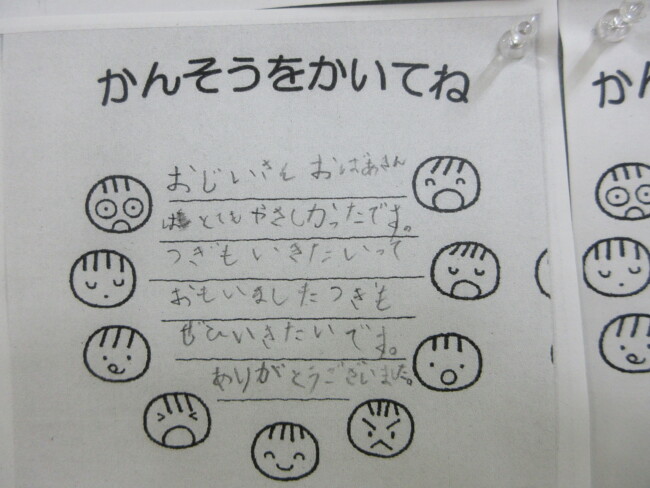 かんそうをかいてね
おじいさん おばあさん
はとてもやさしかったです。
つぎもいきたいって
おもいましたつぎも
ぜひいきたいです。
ありがとうございました。
か